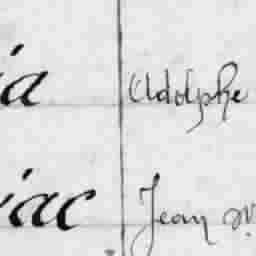 ia Adolphe
iac Jean